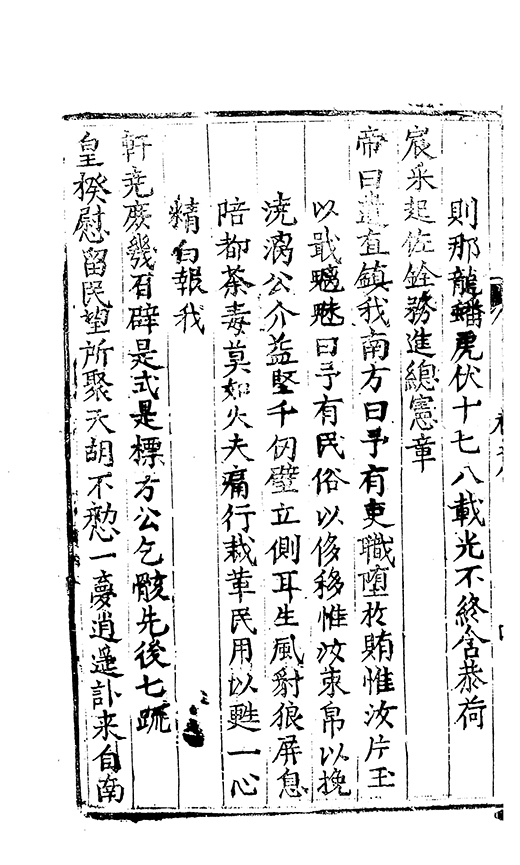 則那龍蟠虎伏十七八載光不終含恭荷
宸采起佐銓務進總憲章
帝曰遣直鎮我南方曰予有吏職墮於賄惟汝片玉
以戢魑魅曰予有民俗以侈移惟汝束帛以挽
澆漓公介益堅千仞壁立側耳生風豺狼屏息
陪都荼毒莫如火夫痛行裁革民用以甦一心
精白報我
軒堯庶幾百辟是式是標方公乞骸先後七疏
皇揆慰留民望所聚天胡不憖一夢逍遥訃来自南